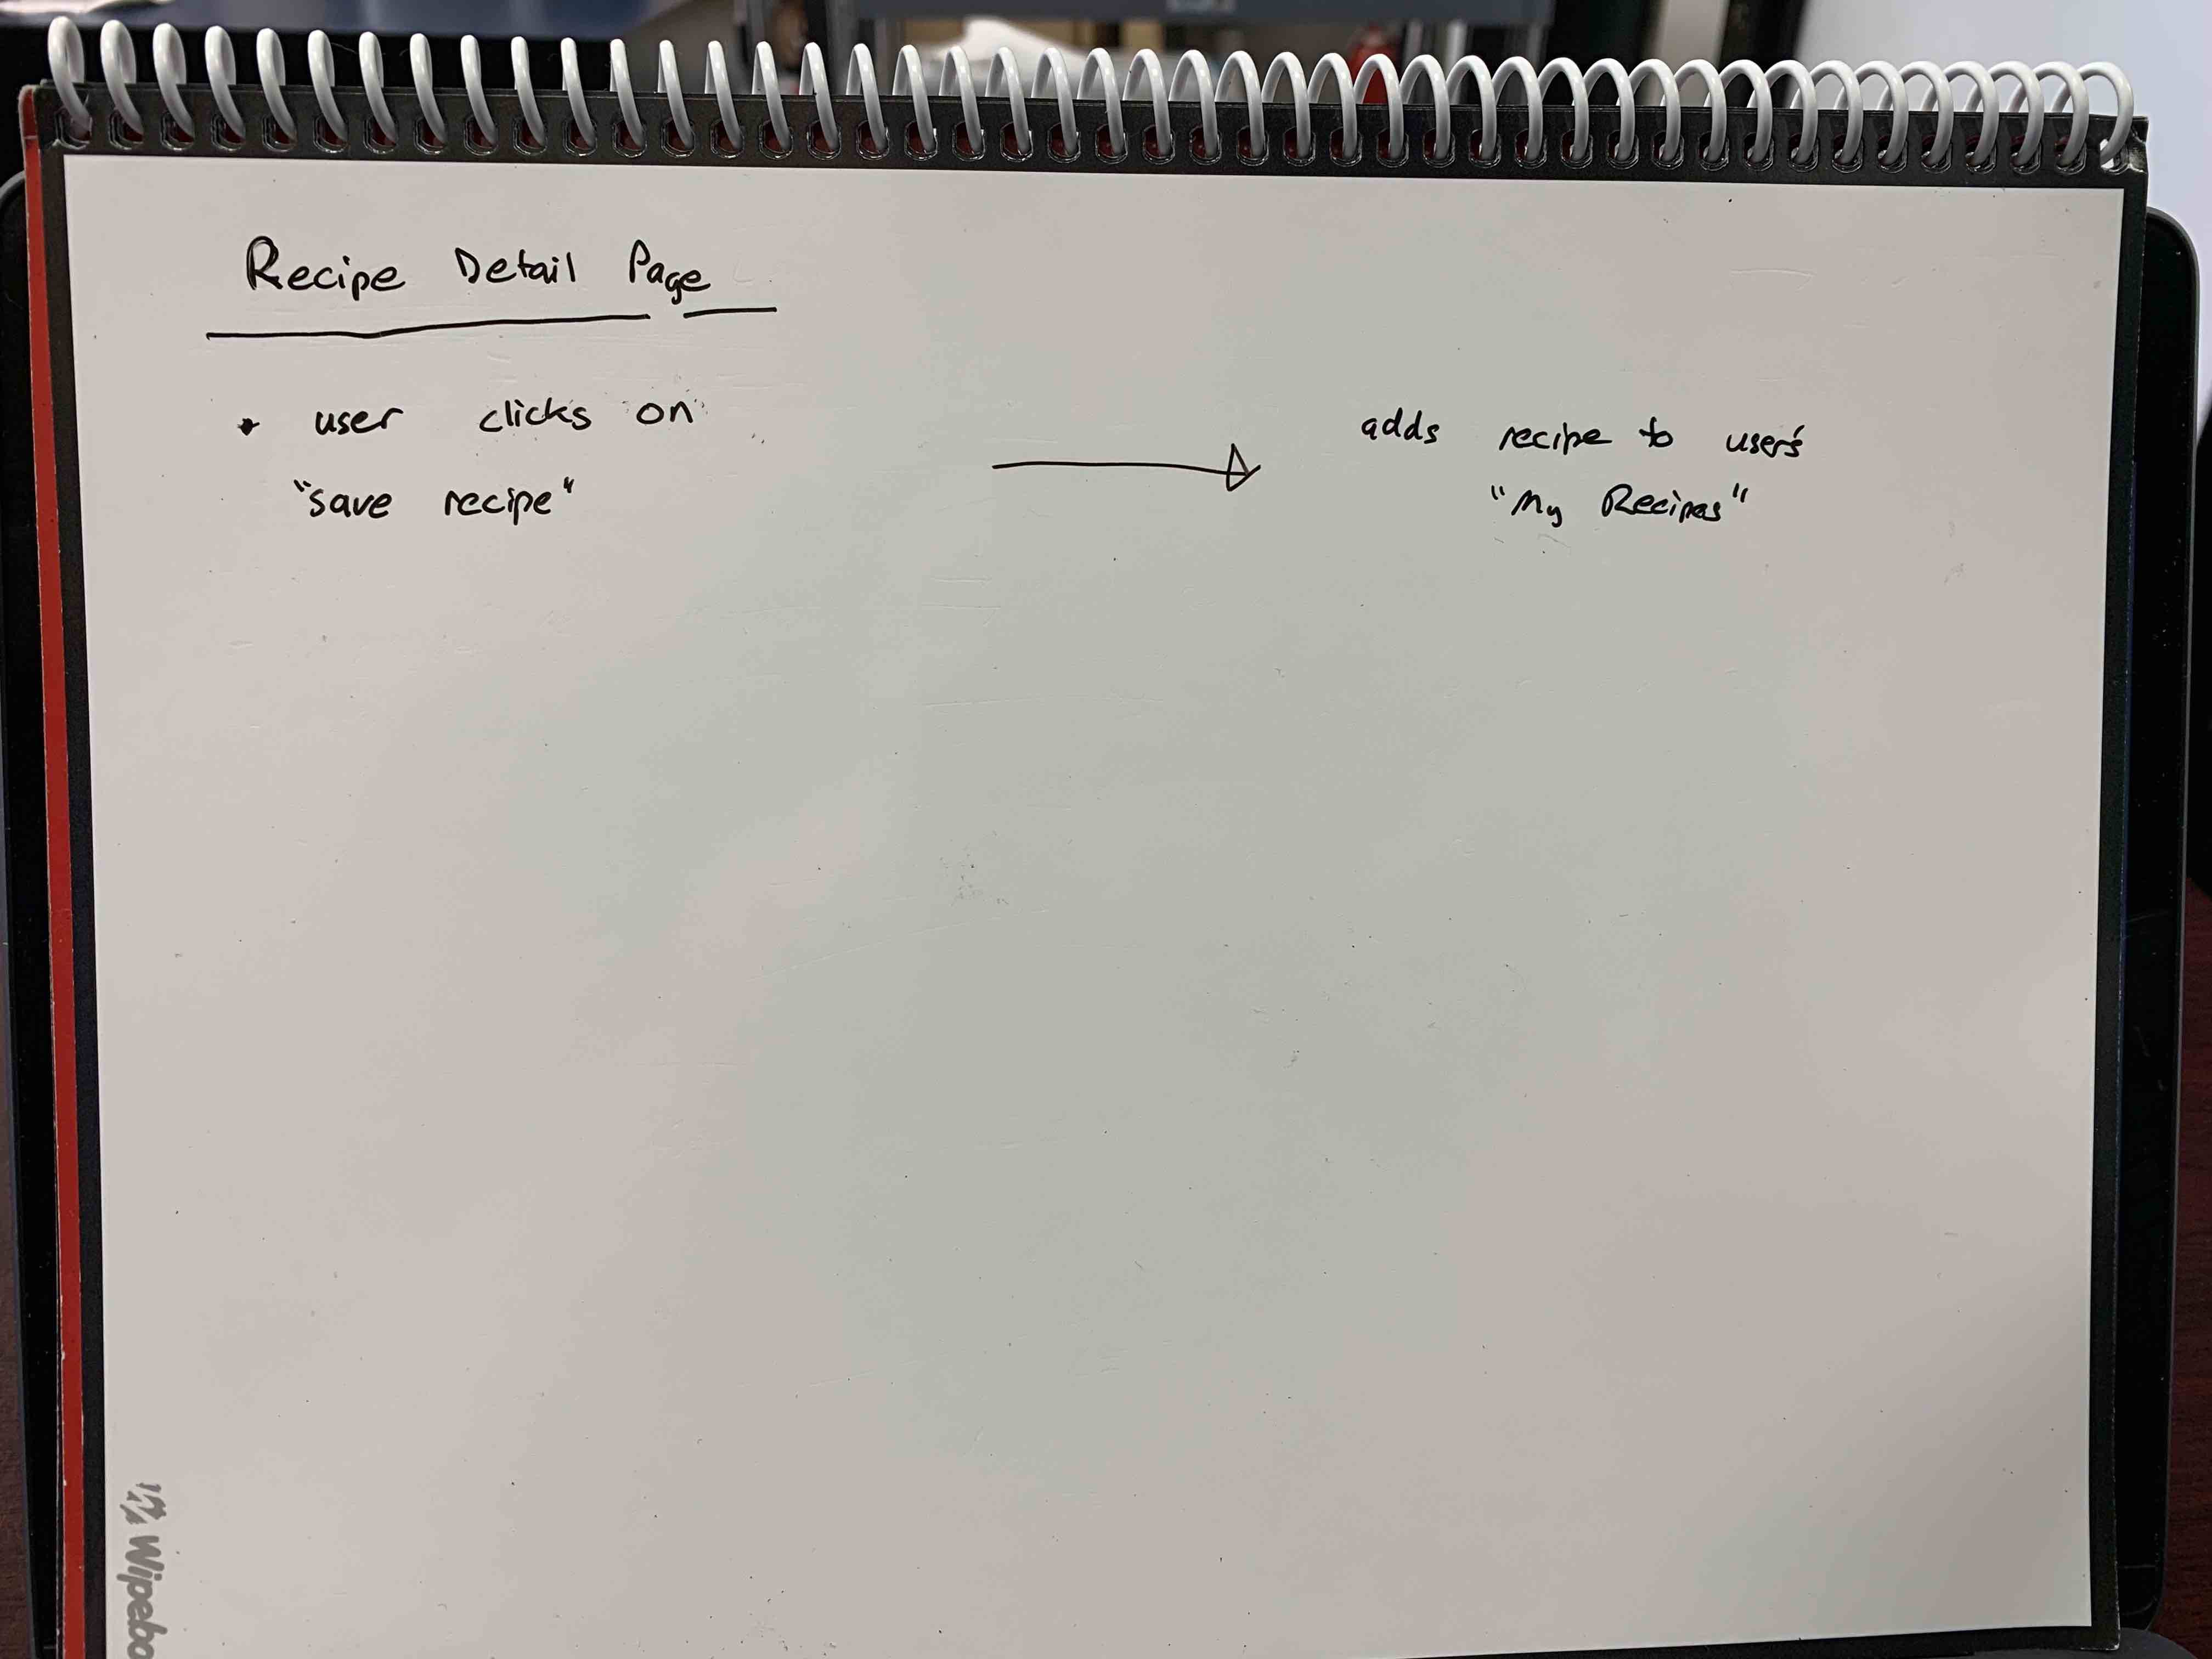 Recipe Detail Page
• user clicks on
"save recipe"
adds recipe to user's
"My Recipes"
Wipebo